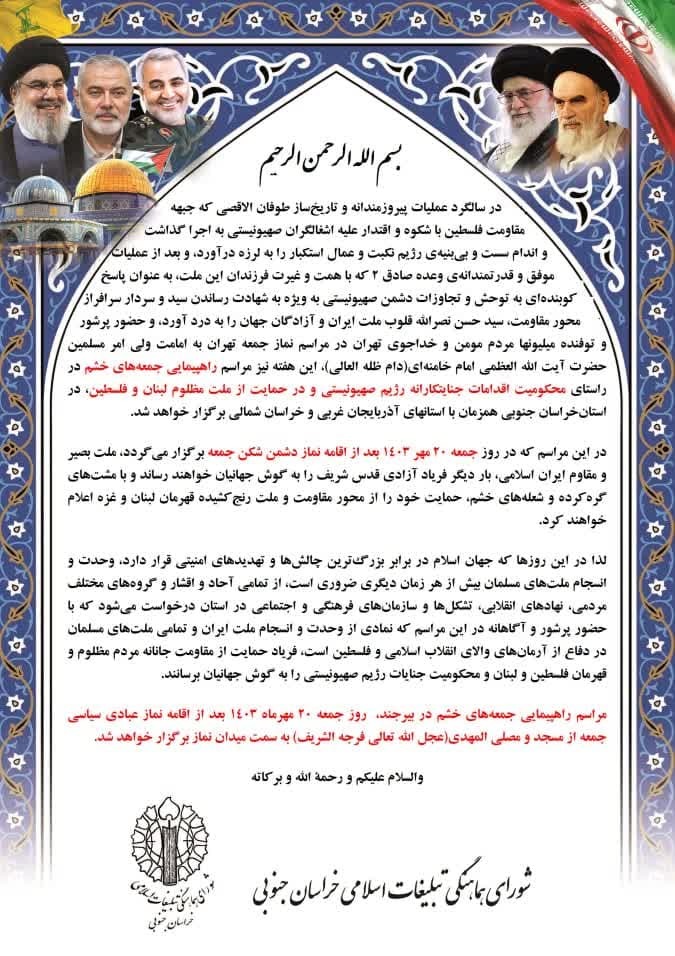 بسم الله الرحمن الرحیم
در سالگرد عملیات پیروزمندانه و تاریخ‌ساز طوفان الاقصی که جبهه
مقاومت فلسطین با شکوه و اقتدار علیه اشغالگران صهیونیستی به اجرا گذاشت
و اندام سست و بی‌بنیه‌ی رژیم نکبت و عمال استکبار را به لرزه درآورد، و بعد از عملیات
موفق و قدرتمندانه‌ی وعده صادق ۲ که با همت و غیرت فرزندان این ملت، به عنوان پاسخ
کوبنده‌ای به توحش و تجاوزات دشمن صهیونیستی به ویژه به شهادت رساندن سید و سردار سرافراز
محور مقاومت، سید حسن نصرالله قلوب ملت ایران و آزادگان جهان را به درد آورد، و حضور پرشور
و توفنده میلیونها مردم مومن و خداجوی تهران در مراسم نماز جمعه تهران به امامت ولی امر مسلمین
حضرت آیت الله العظمی امام خامنه‌ای(دام ظله العالی)، این هفته نیز مراسم راهپیمایی جمعه‌های خشم در
راستای محکومیت اقدامات جنایتکارانه رژیم صهیونیستی و در حمایت از ملت مظلوم لبنان و فلسطین، در
استان‌خراسان جنوبی همزمان با استانهای آذربایجان غربی و خراسان شمالی برگزار خواهد شد.
در این مراسم که در روز جمعه ۲۰ مهر ۱۴۰۳ بعد از اقامه نماز دشمن شکن جمعه برگزار می‌گردد، ملت بصیر
و مقاوم ایران اسلامی، بار دیگر فریاد آزادی قدس شریف را به گوش جهانیان خواهند رساند و با مشت‌های
گره‌کرده و شعله‌های خشم، حمایت خود را از محور مقاومت و ملت رنج‌کشیده قهرمان لبنان و غزه اعلام
خواهند کرد.
لذا در این روزها که جهان اسلام در برابر بزرگ‌ترین چالش‌ها و تهدیدهای امنیتی قرار دارد، وحدت و
انسجام ملت‌های مسلمان بیش از هر زمان دیگری ضروری است، از تمامی آحاد و اقشار و گروه‌های مختلف
مردمی، نهادهای انقلابی، تشکل‌ها و سازمان‌های فرهنگی و اجتماعی در استان درخواست می‌شود که با
حضور پرشور و آگاهانه در این مراسم که نمادی از وحدت و انسجام ملت ایران و تمامی ملت‌های مسلمان
در دفاع از آرمان‌های والای انقلاب اسلامی و فلسطین است، فریاد حمایت از مقاومت جانانه مردم مظلوم و
قهرمان فلسطین و لبنان و محکومیت جنایات رژیم صهیونیستی را به گوش جهانیان برسانند.
مراسم راهپیمایی جمعه‌های خشم در بیرجند، روز جمعه ۲۰ مهرماه ۱۴۰۳ بعد از اقامه نماز عبادی سیاسی
جمعه از مسجد و مصلی المهدی(عجل الله تعالی فرجه الشریف) به سمت میدان نماز برگزار خواهد شد.
والسلام علیکم و رحمة الله و برکاته
شورای هماهنگی تبلیغات اسلامی خراسان جنوبی
شورای هماهنگی تبلیغات اسلامی
خراسان جنوبی